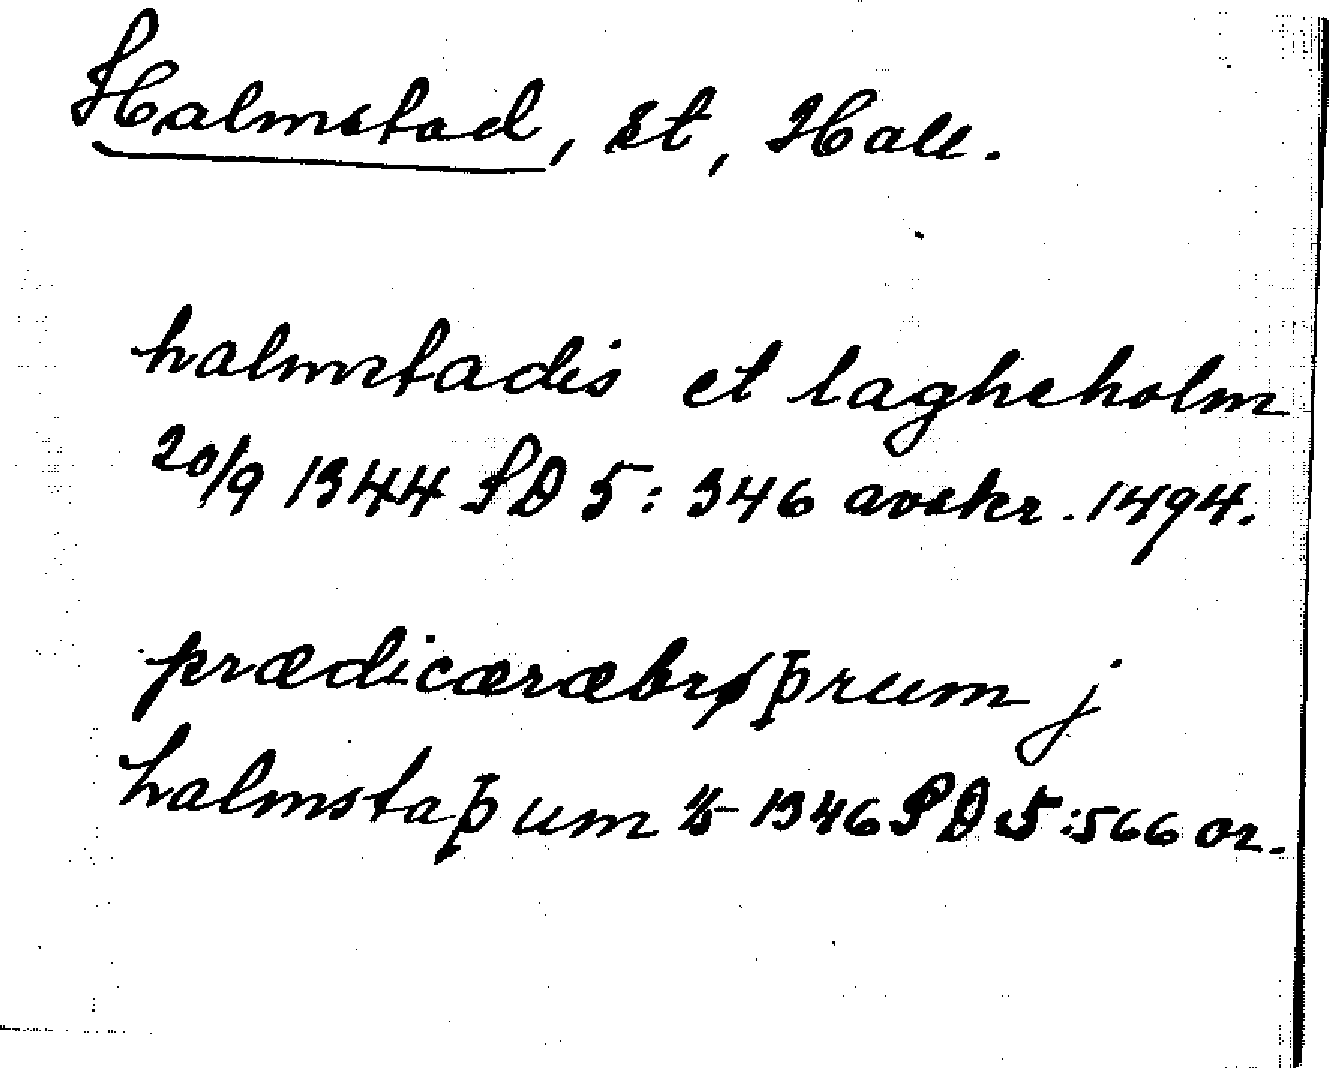 Halmstad, st, Hall.
halmstadis et lagheholm
20/9 1344 SD 5: 346 avskr. 1494.
prædicæræbrøþrum j
halmstaþum 1346 SD 5:566 or.